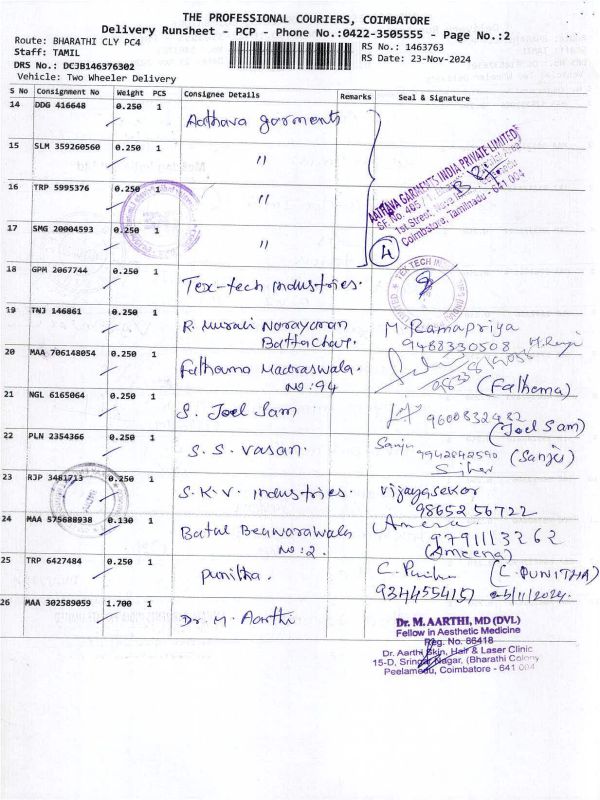 THE PROFESSIONAL COURIERS, COIMBATORE
Delivery Runsheet - PCP - Phone No.:0422-3505555 - Page No.:2
Route: BHARATHI CLY PC4
Staff: TAMIL
RS No.: 1463763
DRS No.: DCJB146376302
RS Date: 23-Nov-2024
Vehicle: Two Wheeler Delivery
S No Consignment No Weight PCS Consignee Details Remarks Seal & Signature
14 DDG 416648 0.250 1 Aathava garments
15 SLM 359260560 0.250 1 "
AATHAVA GARMENTS INDIA PRIVATE LIMITED
SF. No. 465/
1st Street,
Coimbatore, Tamilnadu - 641 004
16 TRP 5995376 0.250 1 "
17 SMG 20004593 0.250 1 "
4
18 GPM 2067744 0.250 1 Tex-tech industries.
19 TNJ 146861 0.250 1 R. Murali Narayanan
Battachar.
M. Ramapriya
9488330508
20 MAA 706148054 0.250 1 Fathama Madraswala.
NO: 94
(Fathema)
21 NGL 6165064 0.250 1 S. Joel Sam
9600832482
(Joel Sam)
22 PLN 2354366 0.250 1 S. S. Vasan.
Sanju 9942042590 (Sanju)
23 RJP 3481713 0.250 1 S.K.V. industries.
Vijayasekar
9865256722
24 MAA 575688938 0.130 1 Batul Beawarawala
NO: 2.
Ameena
9791113262
(Ameena)
25 TRP 6427484 0.250 1 Punitha.
C. Punitha (C. PUNITHA)
9344554157
26 MAA 302589059 1.700 1 Dr. M. Aarthi
Dr. M. AARTHI, MD (DVL)
Fellow in Aesthetic Medicine
Reg. No. 86418
Dr. Aarthi Skin, Hair & Laser Clinic
15-D, Sringar Nagar, (Bharathi Colony
Peelamedu, Coimbatore - 641 004